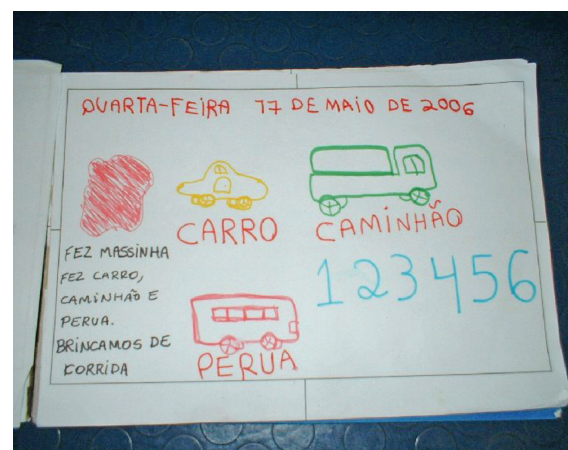 QUARTA-FEIRA 17 DE MAIO DE 2006
CARRO
CAMINHÃO
FEZ MASSINHA
FEZ CARRO,
CAMINHÃO E
PERUA.
BRINCAMOS DE
CORRIDA
PERUA
123456